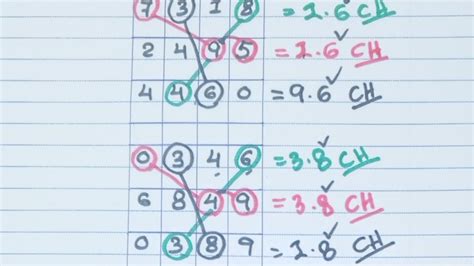 7 3 1 8 = 1.6 ✓ CH
2 4 9 5 = 1.6 ✓ CH
4 4 6 0 = 9.6 ✓ CH
0 3 4 6 = 3.8 ✓ CH
6 8 4 9 = 3.8 ✓ CH
0 3 8 9 = 1.8 ✓ CH